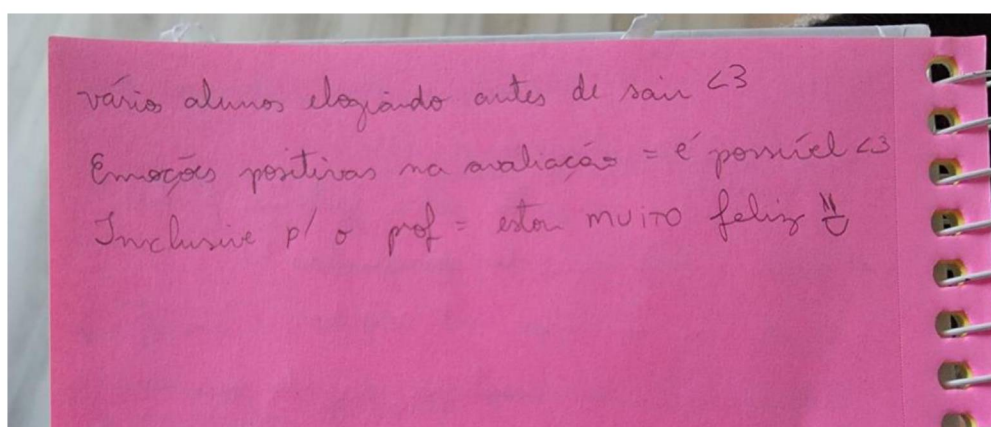 vários alunos elogiando antes de sair <3
Emoções positivas na avaliação = é possível <3
Inclusive p/ o prof = estou MUITO feliz